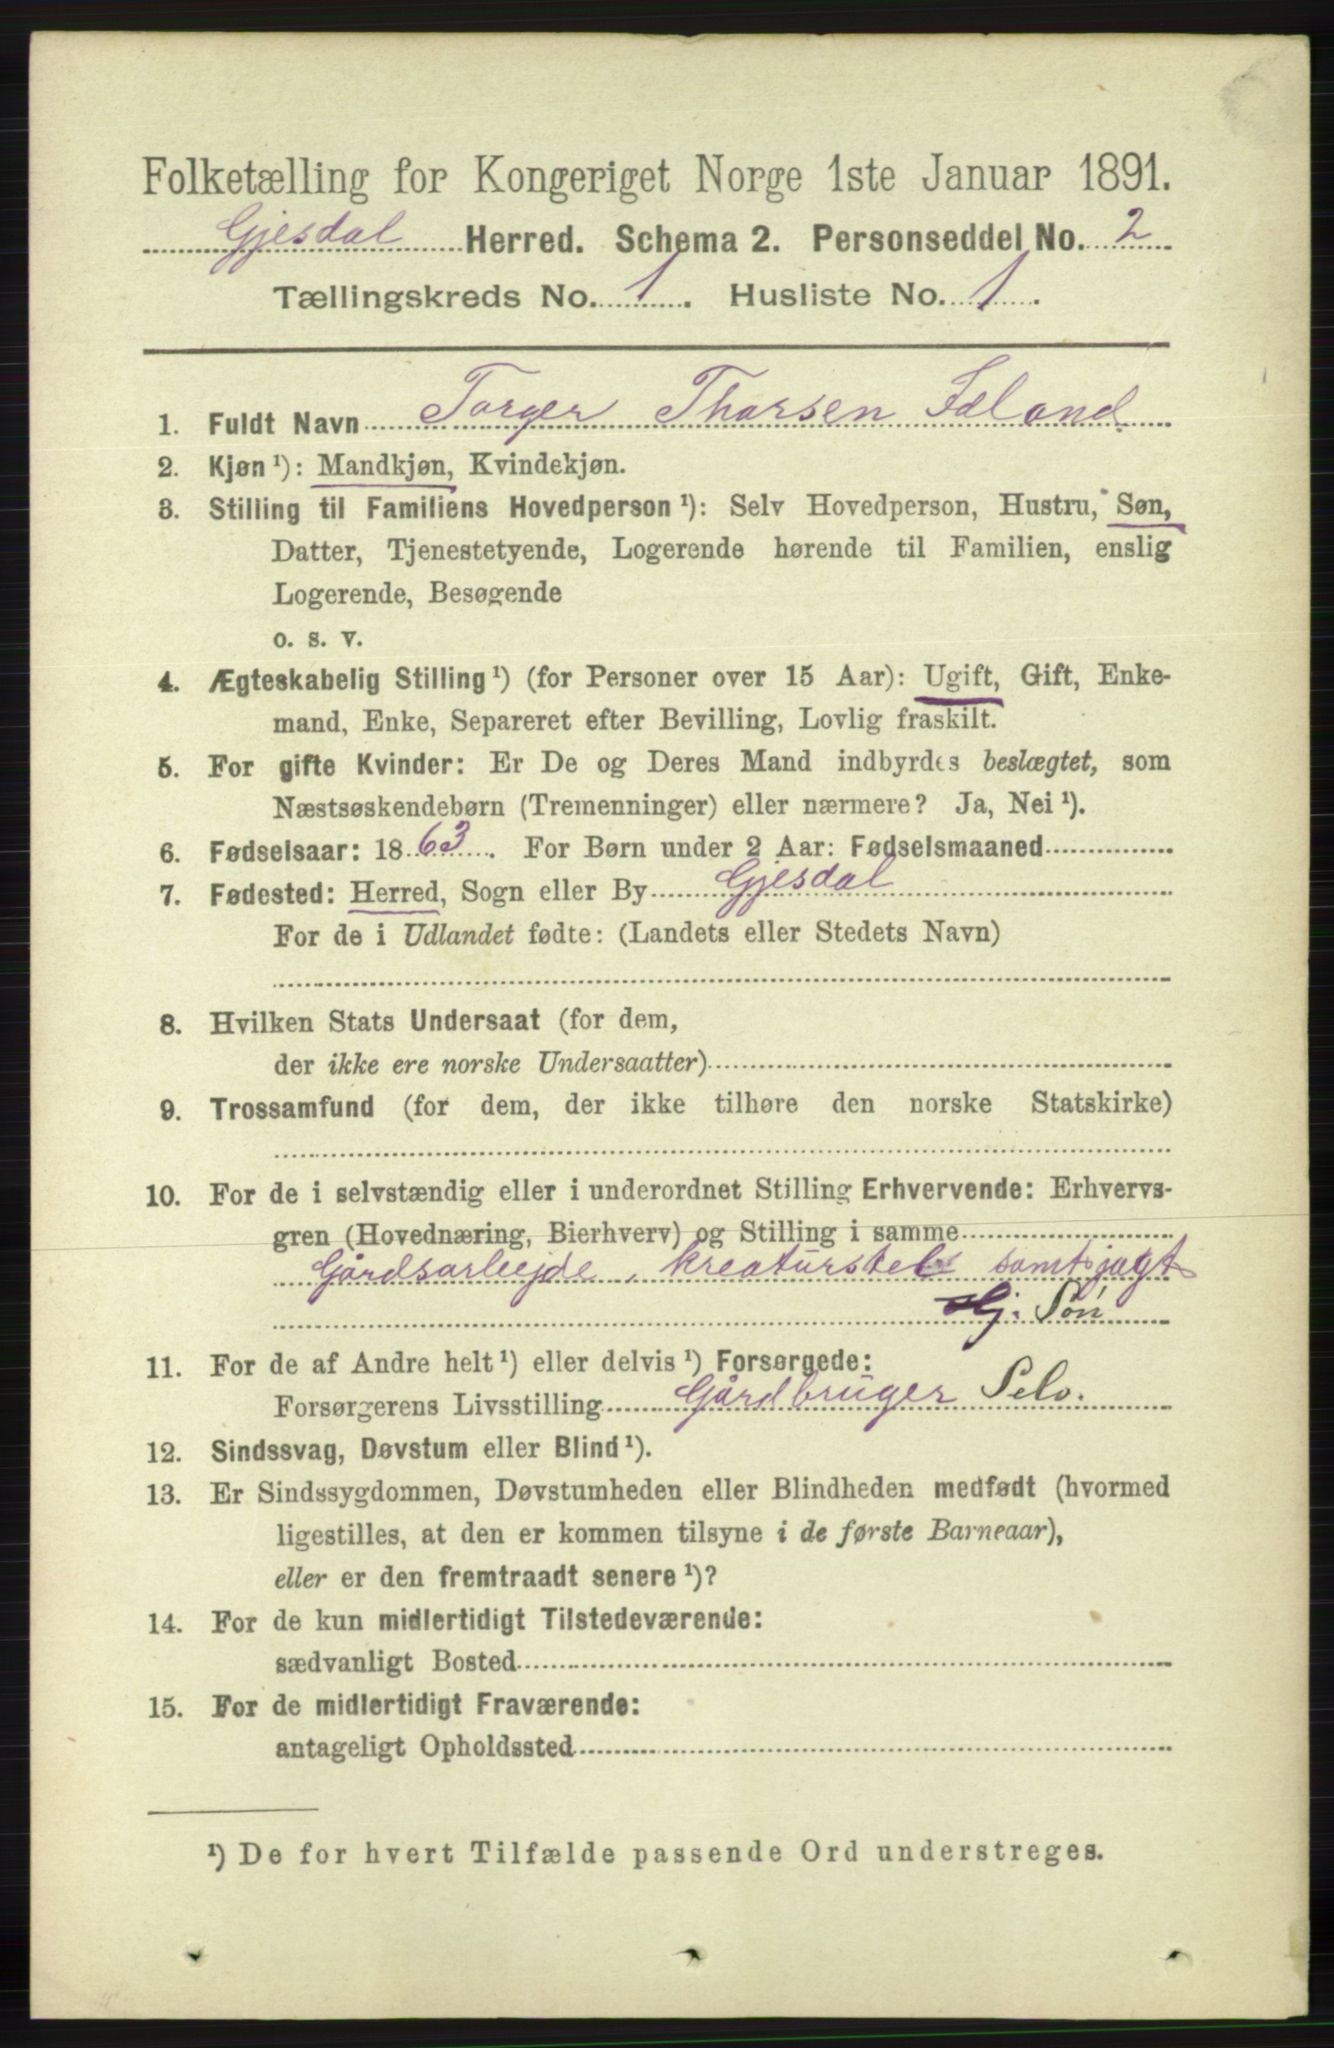 Folketælling for Kongeriget Norge 1ste Januar 1891.
Gjesdal Herred. Schema 2. Personseddel No. 2
Tællingskreds No. 1. Husliste No. 1.
1. Fuldt Navn Torger Thorsen Idland
2. Kjøn ¹): Mandkjøn, Kvindekjøn.
3. Stilling til Familiens Hovedperson ¹): Selv Hovedperson, Hustru, Søn,
Datter, Tjenestetyende, Logerende hørende til Familien, enslig
Logerende, Besøgende
o. s. v.
4. Ægteskabelig Stilling ¹) (for Personer over 15 Aar): Ugift, Gift, Enke-
mand, Enke, Separeret efter Bevilling, Lovlig fraskilt.
5. For gifte Kvinder: Er De og Deres Mand indbyrdes beslægtet, som
Næstsøskendebørn (Tremenninger) eller nærmere? Ja, Nei ¹).
6. Fødselsaar: 1863. For Børn under 2 Aar: Fødselsmaaned
7. Fødested: Herred, Sogn eller By Gjesdal
For de i Udlandet fødte: (Landets eller Stedets Navn)
8. Hvilken Stats Undersaat (for dem,
der ikke ere norske Undersaatter)
9. Trossamfund (for dem, der ikke tilhøre den norske Statskirke)
10. For de i selvstændig eller i underordnet Stilling Erhvervende: Erhvervs-
gren (Hovednæring, Bierhverv) og Stilling i samme
Gårdsarbejde, kreaturstel samt jagt
Hj. Søn
11. For de af Andre helt ¹) eller delvis ¹) Forsørgede:
Forsørgerens Livsstilling Gårdbruger Selv.
12. Sindssvag, Døvstum eller Blind ¹).
13. Er Sindssygdommen, Døvstumheden eller Blindheden medfødt (hvormed
ligestilles, at den er kommen tilsyne i de første Barneaar),
eller er den fremtraadt senere ¹)?
14. For de kun midlertidigt Tilstedeværende:
sædvanligt Bosted
15. For de midlertidigt Fraværende:
antageligt Opholdssted
¹) De for hvert Tilfælde passende Ord understreges.